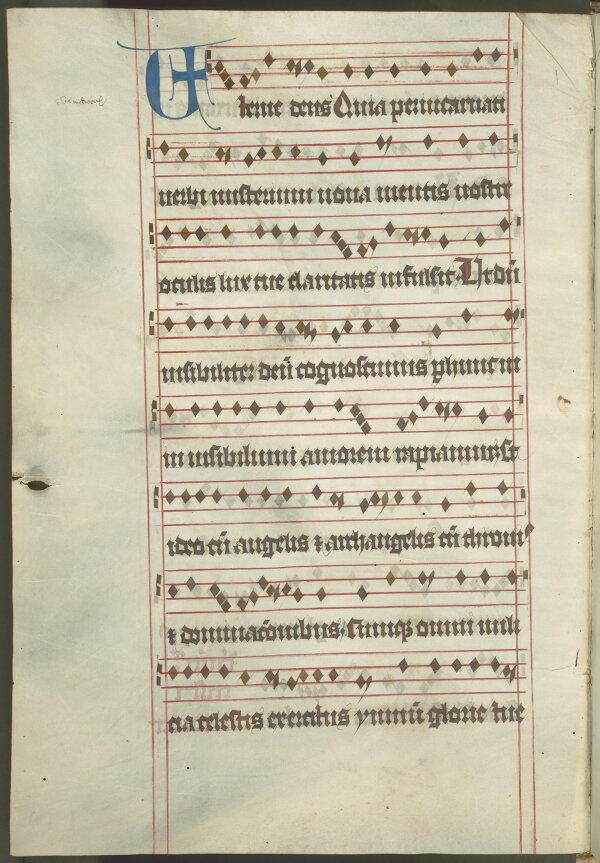 Eterne deus Quia per incarnati
uerbi misterium noua mentis nostre
oculis lux tue claritatis infulsit. Ut dū
uisibiliter deū cognoscimus p hunc in
in inuisibilium amorem rapiamur. Et
ideo cū angelis ⁊ archangelis cū thronis
⁊ dominacōnibus. Cumqꝫ omni mili
cia celestis exercitus ymnū glorie tue